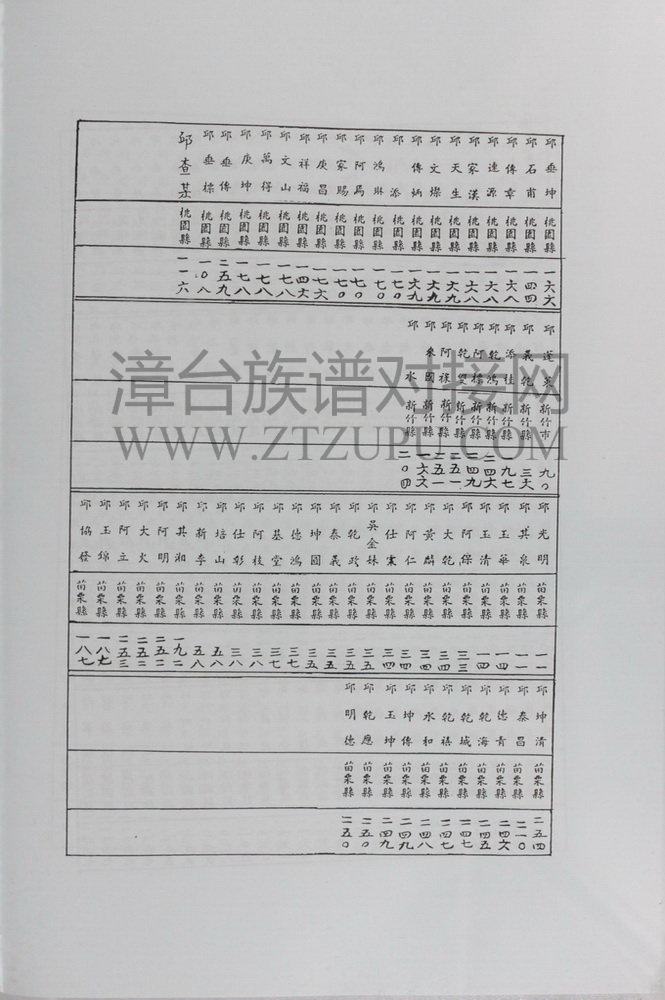 邱垂坤 桃園縣 一六六
邱石甫 桃園縣 一四四
邱傳章 桃園縣 一六八
邱連源 桃園縣 一六八
邱家漢 桃園縣 一六八
邱天生 桃園縣 一六九
邱文燦 桃園縣 一六九
邱傳炳 桃園縣 一六九
邱添 桃園縣 一七0
邱鴻琳 桃園縣 一七0
邱阿馬 桃園縣 一七0
邱家賜 桃園縣 一七0
邱庚昌 桃園縣 一七六
邱祥福 桃園縣 一四六
邱文山 桃園縣 一七八
邱萬得 桃園縣 一七八
邱庚坤 桃園縣 一七八
邱垂傳 桃園縣 二五九
邱垂標 桃園縣 一0八
邱查某 桃園縣 一一六
邱逢 新竹市 九0
邱義乾 新竹縣 三六
邱添桂 新竹縣 九七
邱乾鴻 新竹縣 一四六
邱阿標 新竹縣 一四九
邱乾 新竹縣 二五一
邱阿祿 新竹縣 二五一
邱東國 新竹縣 一六六
邱水 新竹縣 二0四
邱光明 苗栗縣 一一
邱其泉 苗栗縣 一一
邱玉華 苗栗縣 一四
邱玉清 苗栗縣 一四
邱阿保 苗栗縣 三三
邱大乾 苗栗縣 三四
邱黃麟 苗栗縣 三四
邱阿仁 苗栗縣 三四
邱仕業 苗栗縣 三四
邱吳金妹 苗栗縣 三五
邱乾政 苗栗縣 三五
邱泰義 苗栗縣 三五
邱坤國 苗栗縣 三五
邱德鴻 苗栗縣 三七
邱基堂 苗栗縣 三七
邱阿枝 苗栗縣 三八
邱仕彰 苗栗縣 三八
邱培山 苗栗縣 五八
邱新李 苗栗縣 五八
邱其湘 苗栗縣 一九二
邱阿明 苗栗縣 二五二
邱大火 苗栗縣 二五二
邱阿立 苗栗縣 二五三
邱玉錦 苗栗縣 一八七
邱協發 苗栗縣 一八七
邱坤清 苗栗縣 二五四
邱泰昌 苗栗縣 二一0
邱德青 苗栗縣 二四六
邱乾海 苗栗縣 二四五
邱乾城 苗栗縣 二四七
邱乾祺 苗栗縣 二四七
邱永和 苗栗縣 二四八
邱坤傳 苗栗縣 二四九
邱玉坤 苗栗縣 二四九
邱乾應 苗栗縣 二五0
邱明德 苗栗縣 二五0
漳台族谱对接网
WWW.ZTZUPU.COM